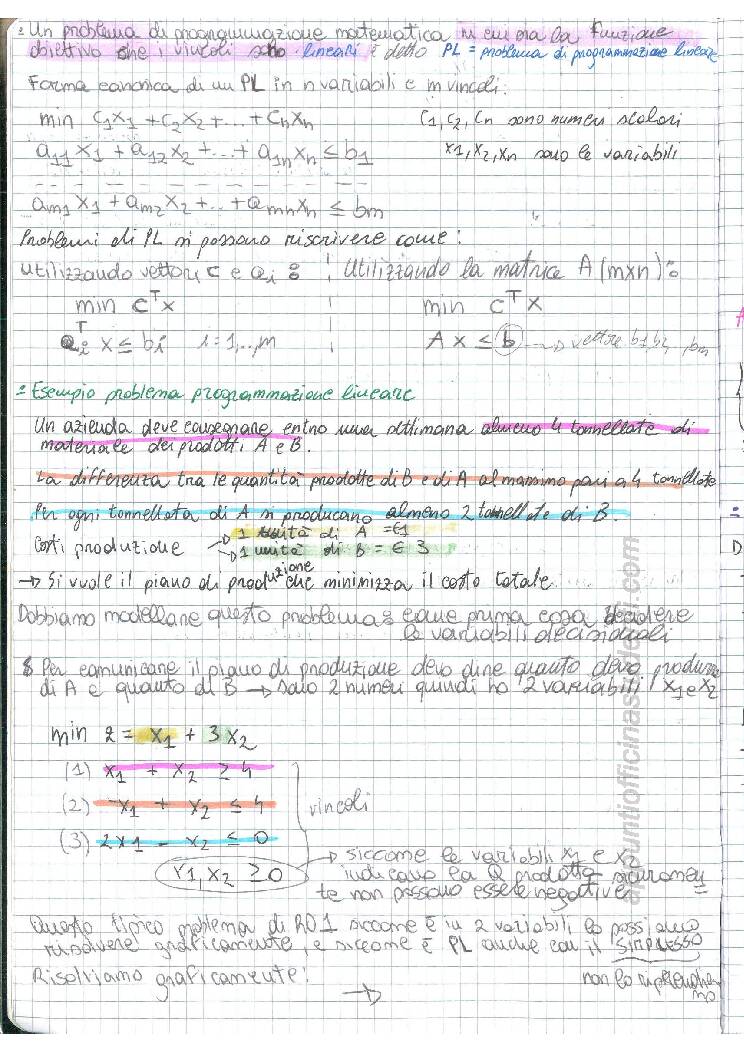 : Un problema di programmazione matematica in cui sia la funzione
obiettivo che i vincoli sono lineari è detto PL = problema di programmazione lineare
Forma canonica di un PL in n variabili e m vincoli:
min C1X1 + C2X2 +...+ CnXn C1, C2, Cn sono numeri scalari
a11 X1 + a12 X2 +...+ a1n Xn ≤ b1 X1, X2, Xn sono le variabili
am1 X1 + am2 X2 +..+ amn Xn ≤ bm
Problemi di PL si possono riscrivere come:
Utilizzando vettori c e ai : Utilizzando la matrice A (mxn):
min C^T X min C^T X
ai^T X ≤ bi i = 1,..,m A X ≤ b → vettore b1 b2 , bm
: Esempio problema programmazione lineare
Un azienda deve consegnare entro una settimana almeno 4 tonnellate di
materiale dei prodotti A e B.
La differenza tra le quantità prodotte di B e di A al massimo pari a 4 tonnellate
Per ogni tonnellata di A si producano almeno 2 tonnellate di B.
Costi produzione → 1 unità di A = €1
→ 1 unità di B = € 3
→ Si vuole il piano di produzione che minimizza il costo totale
Dobbiamo modellare questo problema: come prima cosa decidere
le variabili decisionali
Per comunicare il piano di produzione devo dire quanto devo produrre
di A e quanto di B → sono 2 numeri quindi ho 2 variabili X1 e X2
min z = X1 + 3 X2
(1) X1 + X2 ≥ 4
(2) -X1 + X2 ≤ 4
(3) 2X1 - X2 ≤ 0
vincoli
X1, X2 ≥ 0
→ siccome le variabili X1 e X2
indicano la Q prodotta sicuramen
te non possono essere negative
Questo tipico problema di RO1 siccome è in 2 variabili lo possiamo
risolvere graficamente, e siccome è PL anche con il SIMPLESSO
Risolviamo graficamente! non lo riprendia
mo
→
appuntiofficinastudenti.com